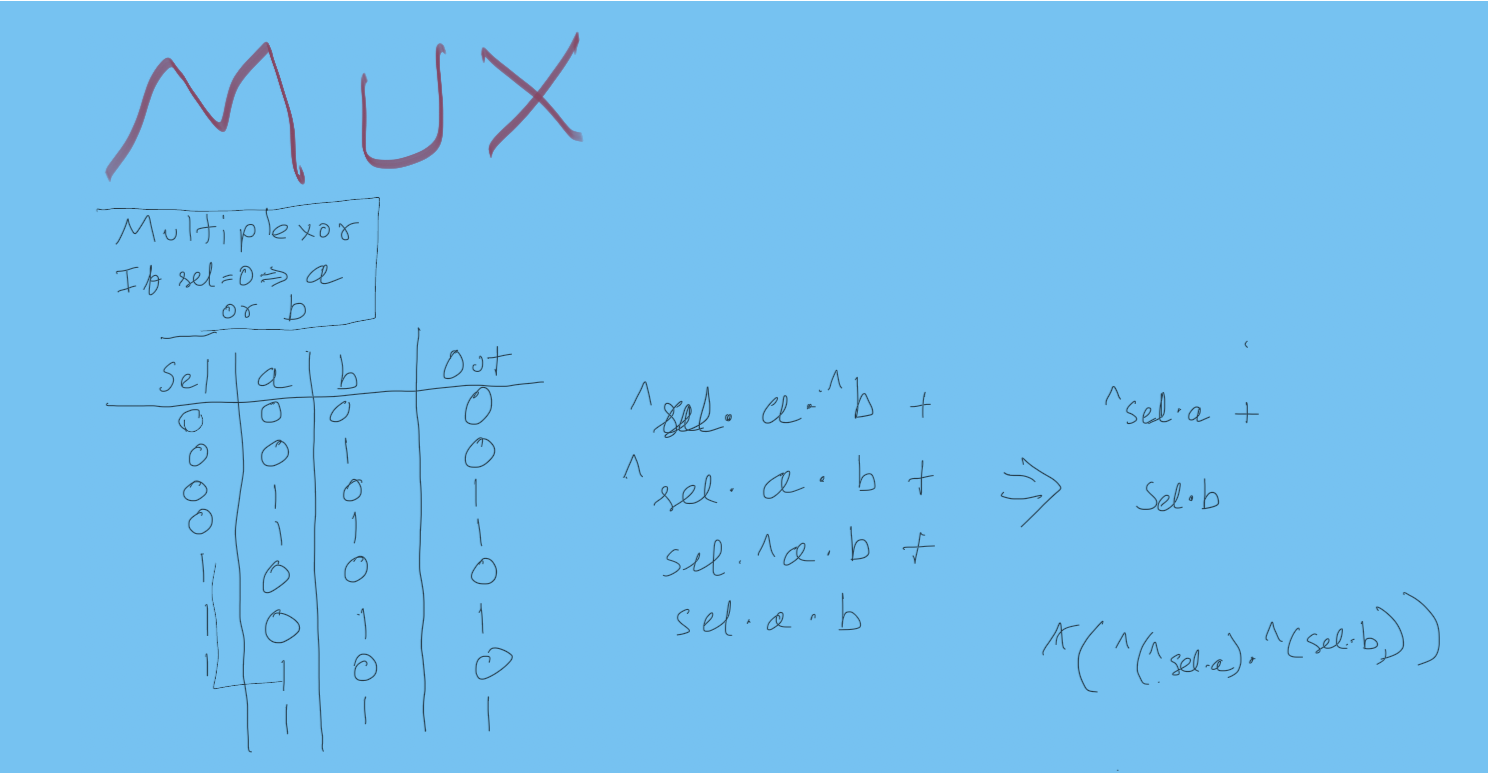 MUX
Multiplexor
If sel=0⇒ a
or b
Sel a b Out
0 0 0 0
0 0 1 0
0 1 0 1
0 1 1 1
1 0 0 0
1 0 1 1
1 1 0 0
1 1 1
^sel. a.^b +
^sel. a. b +
sel. ^a. b +
sel. a. b
⇒
^sel.a +
Sel.b
^(^(^sel.a).^(sel.b))